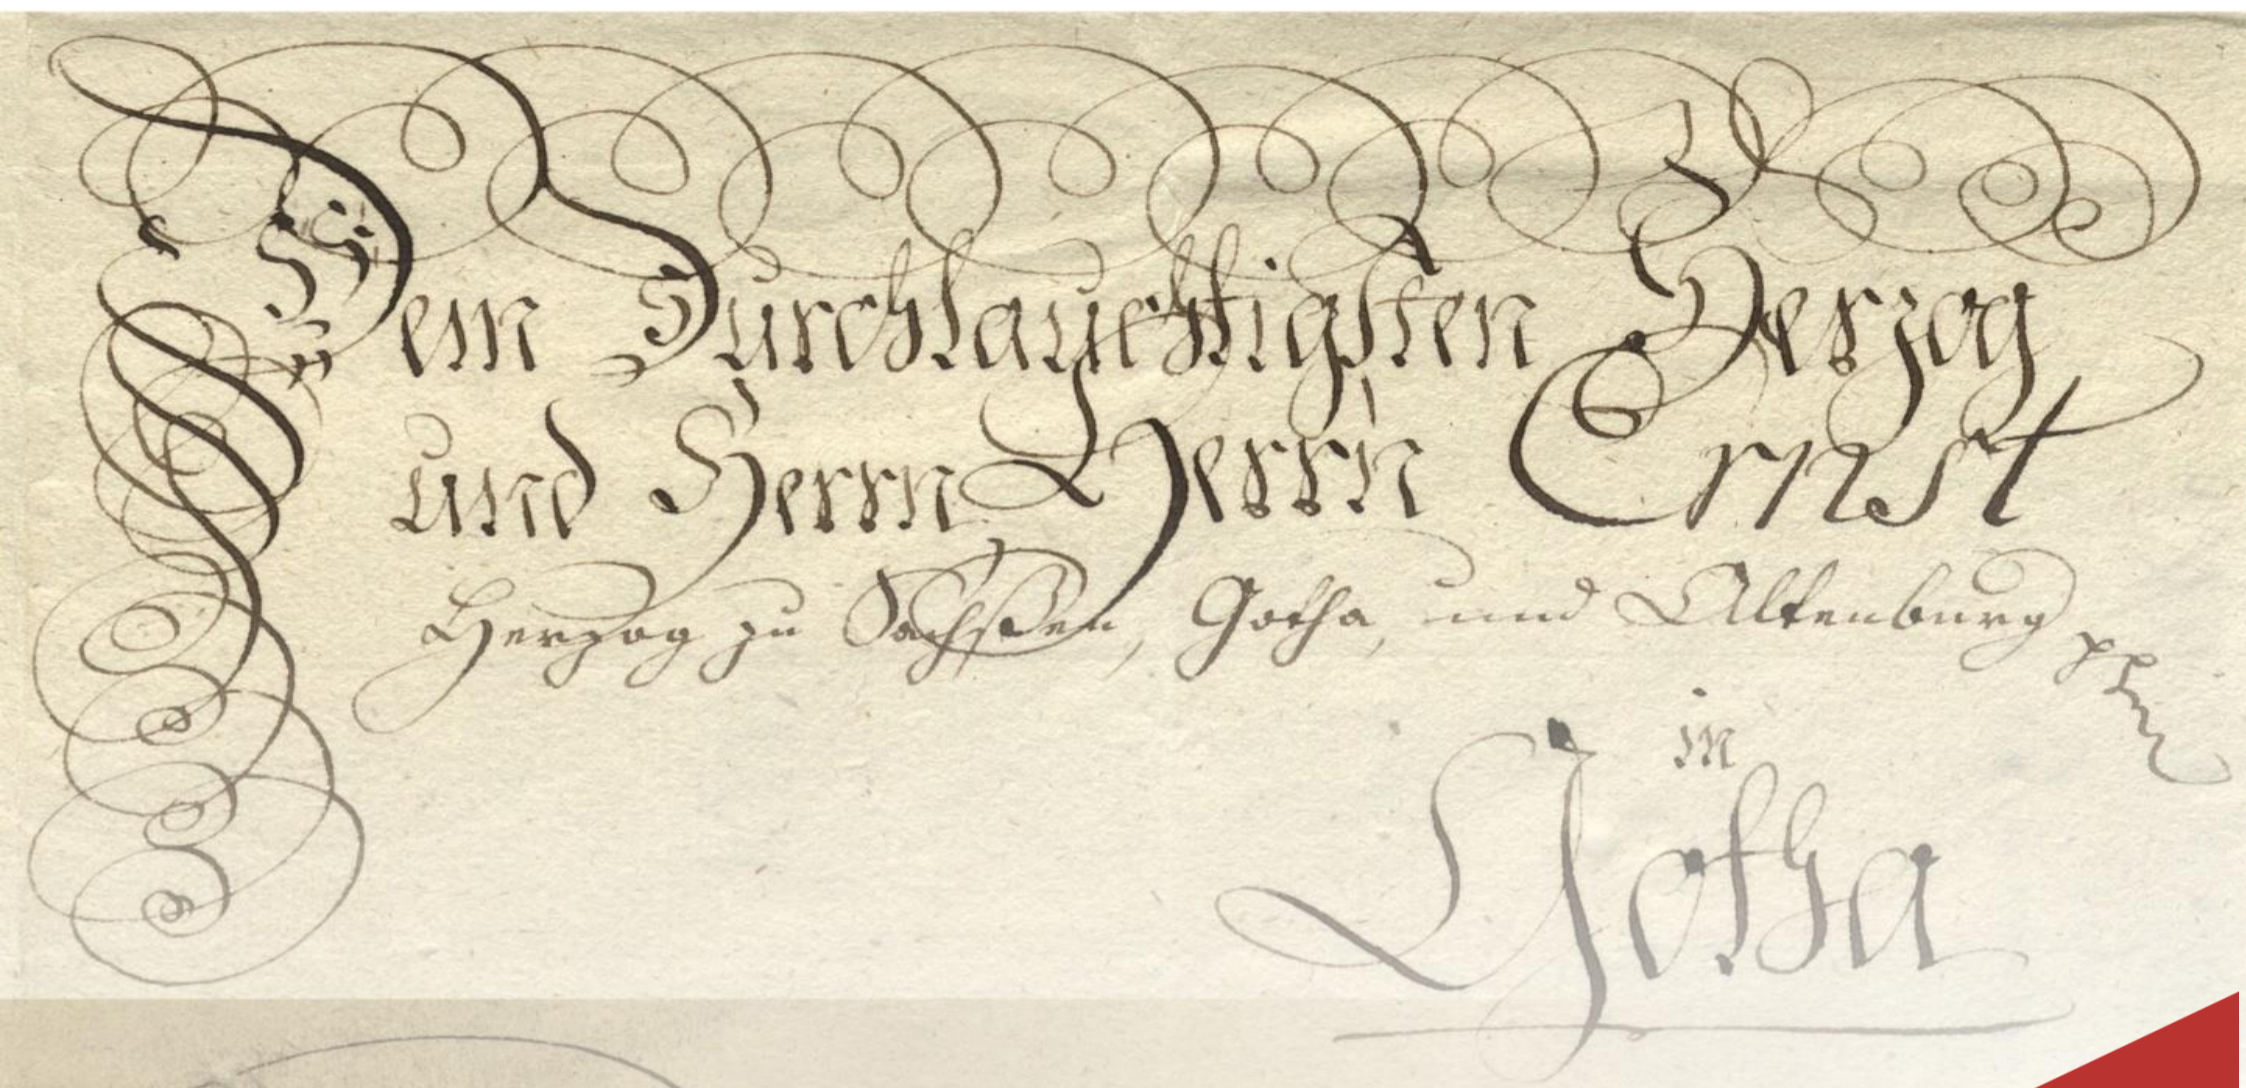 Dem Durchlauchtigsten Herzog
und Herrn Herrn Ernst
Herzog zu Sachßen, Gotha, und Altenburg pp
in
Gotha